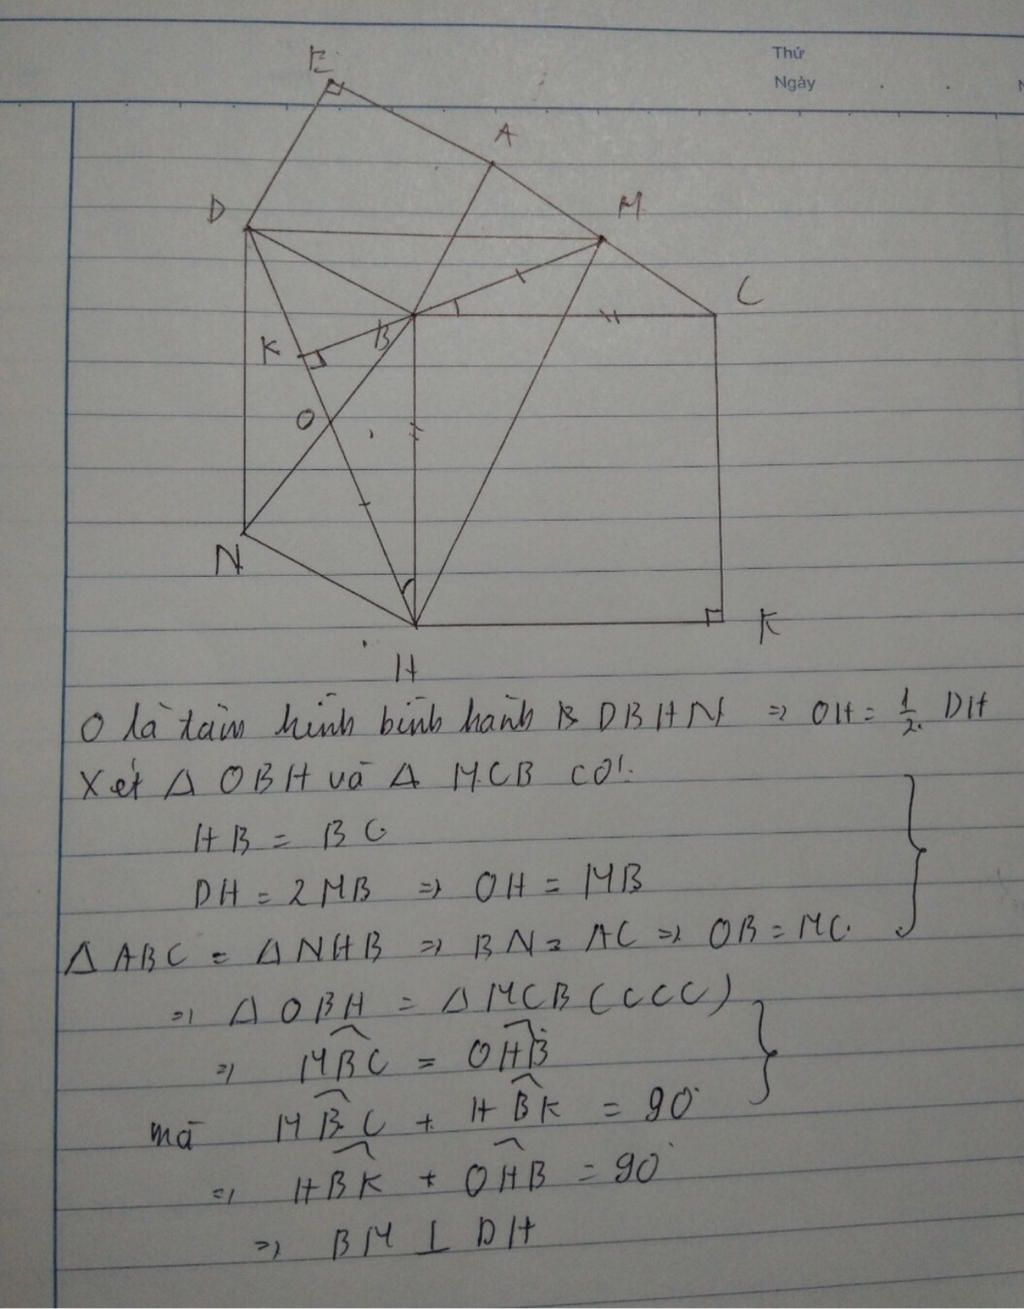 Thứ
Ngày
E
A
D
M
C
K
B
O
N
H
K
O là tâm hình bình hành B DBHN => OH = 1/2 DH
Xét Δ OBH và Δ MCB có:
HB = BC
DH = 2MB => OH = MB
Δ ABC = Δ NHB => BN = AC => OB = MC
=> Δ OBH = Δ MCB (CCC)
=> MBC = OHB
mà MBC + HBK = 90°
=> HBK + OHB = 90°
=> BM ⊥ DH